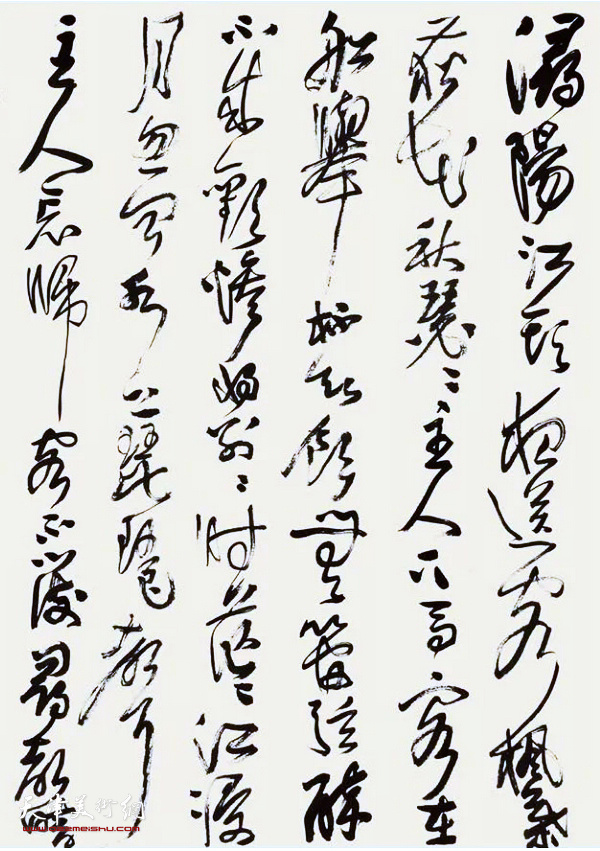 潯陽江頭夜送客楓葉
荻花秋瑟〻主人下馬客在
船舉酒欲飲無管弦醉
不成歡慘將別〻時茫〻江浸
月忽聞水上琵琶聲
主人忘歸客不發尋聲暗
天津美術網